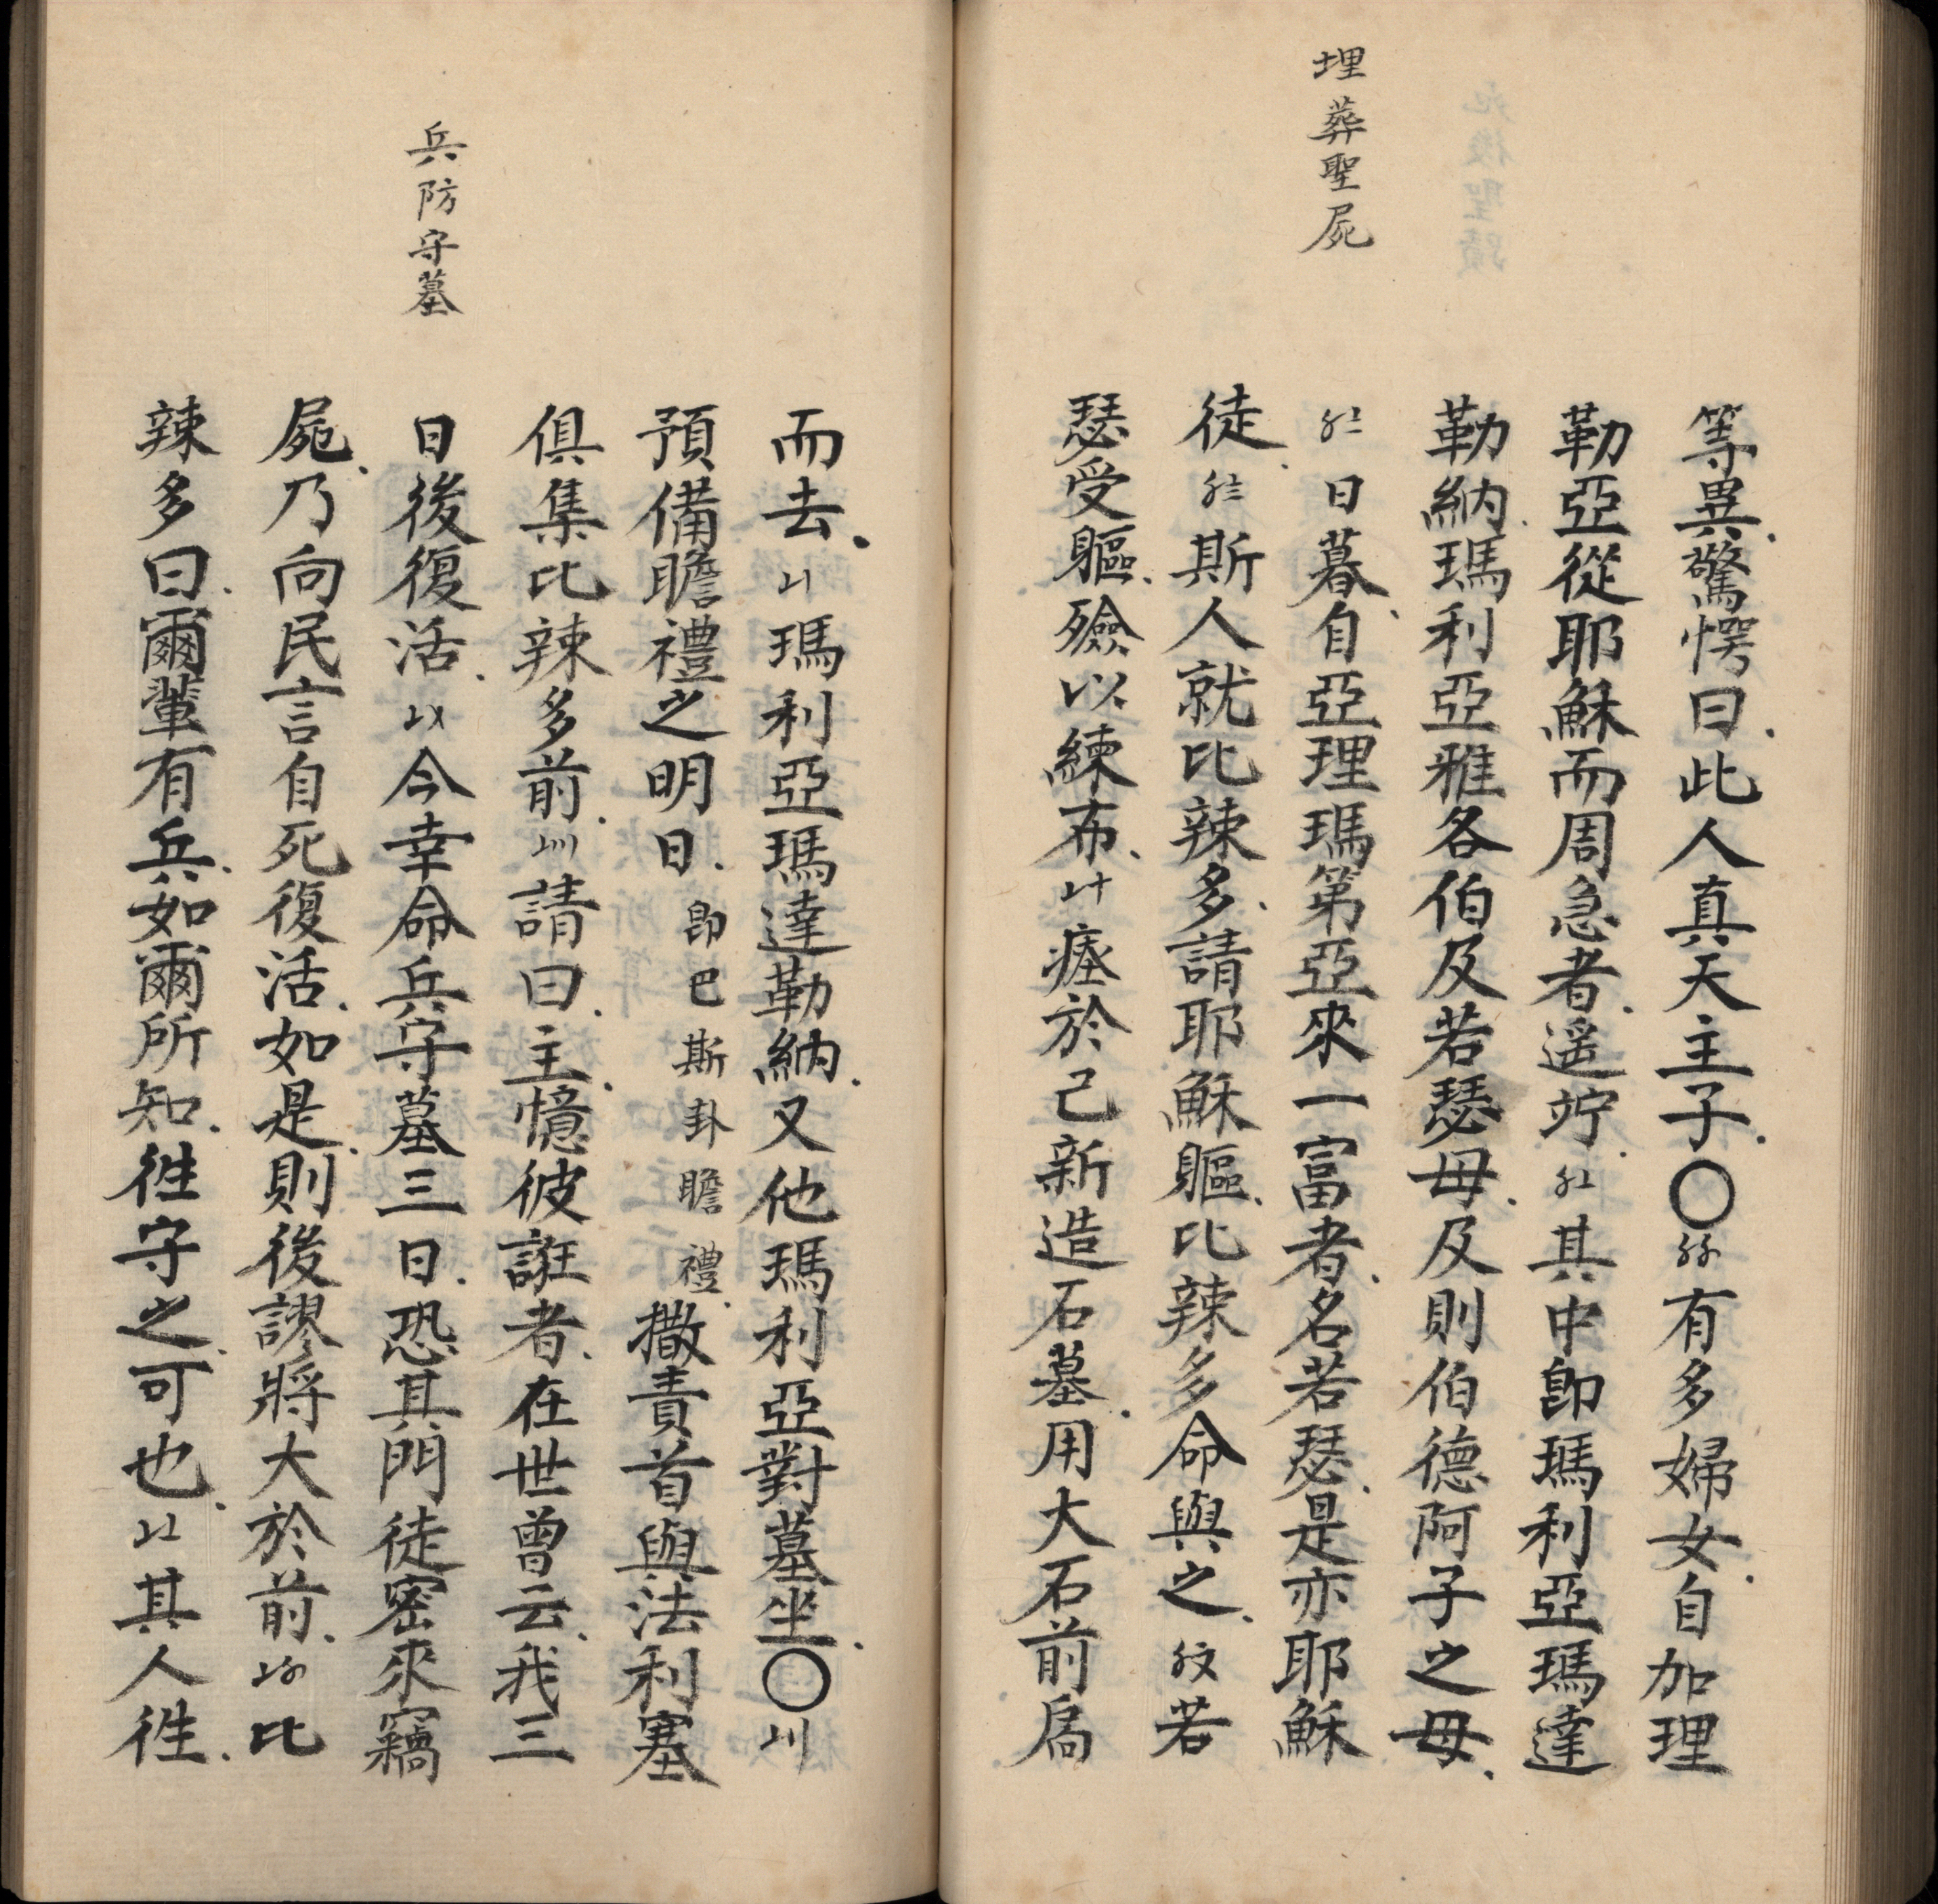 埋葬聖屍
等異、驚愕曰、此人真天主子、〇〥〥有多婦女、自加理
勒亞從耶穌而周急者、遥竚、〥〦其中即瑪利亞瑪達
勒納、瑪利亞雅各伯及若瑟母、及則伯德阿子之母、
〥〧日暮、自亞理瑪第亞來一富者、名若瑟、是亦耶穌
徒、〥〨斯人就比辣多、請耶穌軀、比辣多命與之、〥〩若
瑟受軀、殮以練布、〦十瘞於己新造石墓、用大石前扃
兵防守墓
而去、〦〡瑪利亞瑪達勒納、又他瑪利亞對墓坐、〇〦〢
預備瞻禮之明日、即巴斯卦瞻禮、撒責首與法利塞
俱集比辣多前、〦〣請曰、主、憶彼誑者、在世曾云、我三
日後復活、〦〤今幸命兵守墓三日、恐其門徒密來竊
屍、乃向民言自死復活、如是、則後謬將大於前、〦〥比
辣多曰、爾輩有兵、如爾所知、徃守之、可也、〦〦其人徃、